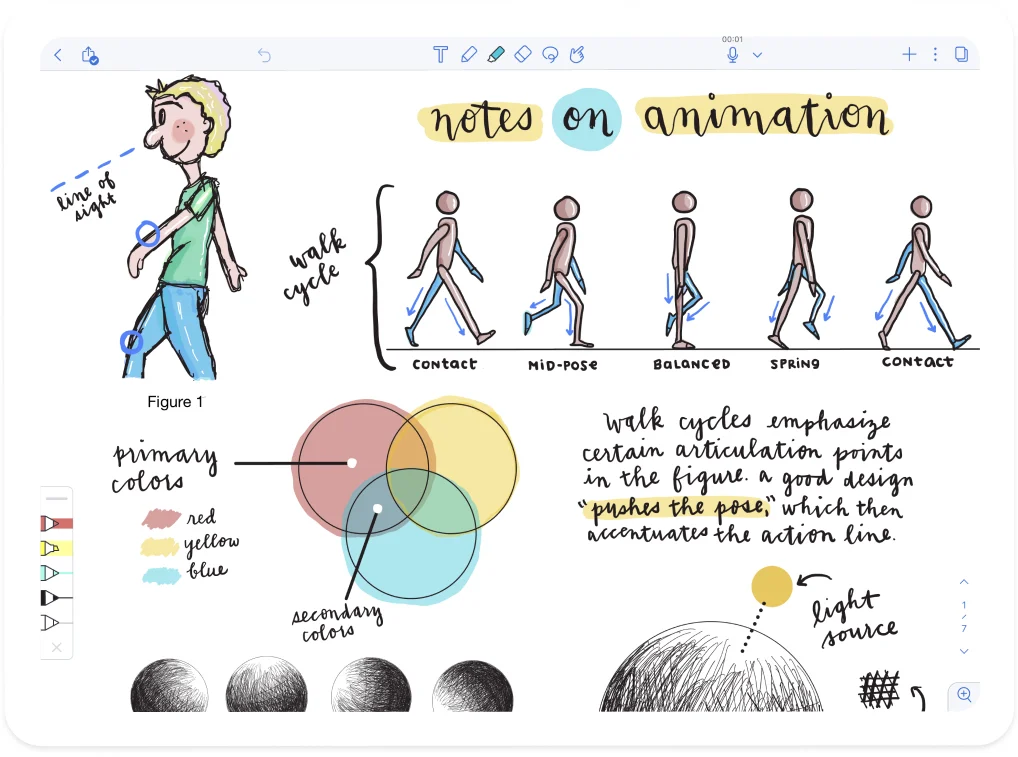 00:01
T
notes on animation
line of
sight
walk
cycle
CONTACT
MID-POSE
BALANCED
SPRING
CONTACT
Figure 1
primary
colors
red
yellow
blue
secondary
colors
walk cycles emphasize
certain articulation points
in the figure. a good design
"pushes the pose," which then
accentuates the action line.
light
source
1
/
7